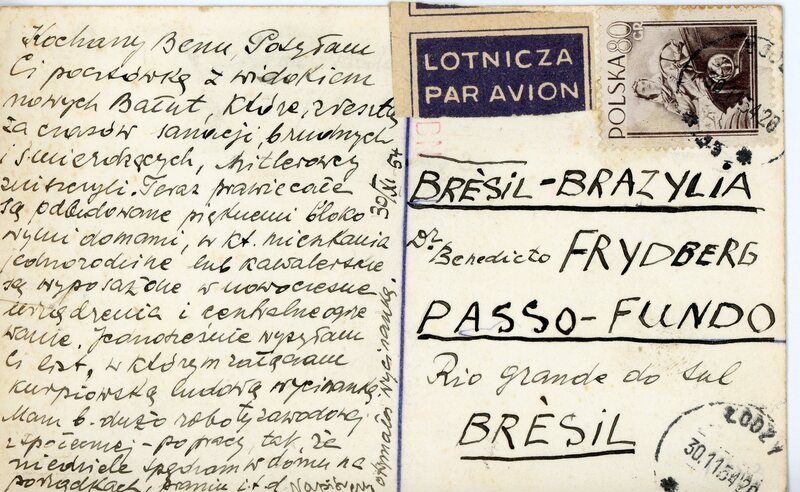 Kochany Benu, Posyłam
Ci pocztówkę z widokiem
nowych Bałut, które, zresztą
za czasów sanacji, brudnych
i śmierdzących, Hitlerowcy
zniszczyli. Teraz prawie całe
są odbudowane pięknemi bloko
wymi domami, w kt. mieszkania
jednorodzine lub kawalerskie
są wyposażone w nowoczesne
urządzenia i centralne ogrze
wanie. Jednocześnie wysyłam
Ci list, w którym załączam
kurpiowską ludową wycinankę.
Mam b. dużo roboty zawodowej
i społecznej - po pracy, tak, że
niedziele spędzam w domu na
porządkach, praniu i t. d.
wycinankę.
30/XI 54
LOTNICZA
PAR AVION
POLSKA 80 GR
BRÈSIL - BRAZYLIA
Dr. Benedicto FRYDBERG
PASSO - FUNDO
Rio grande do sul
BRÈSIL
ŁÓDŹ 7
30.11.54